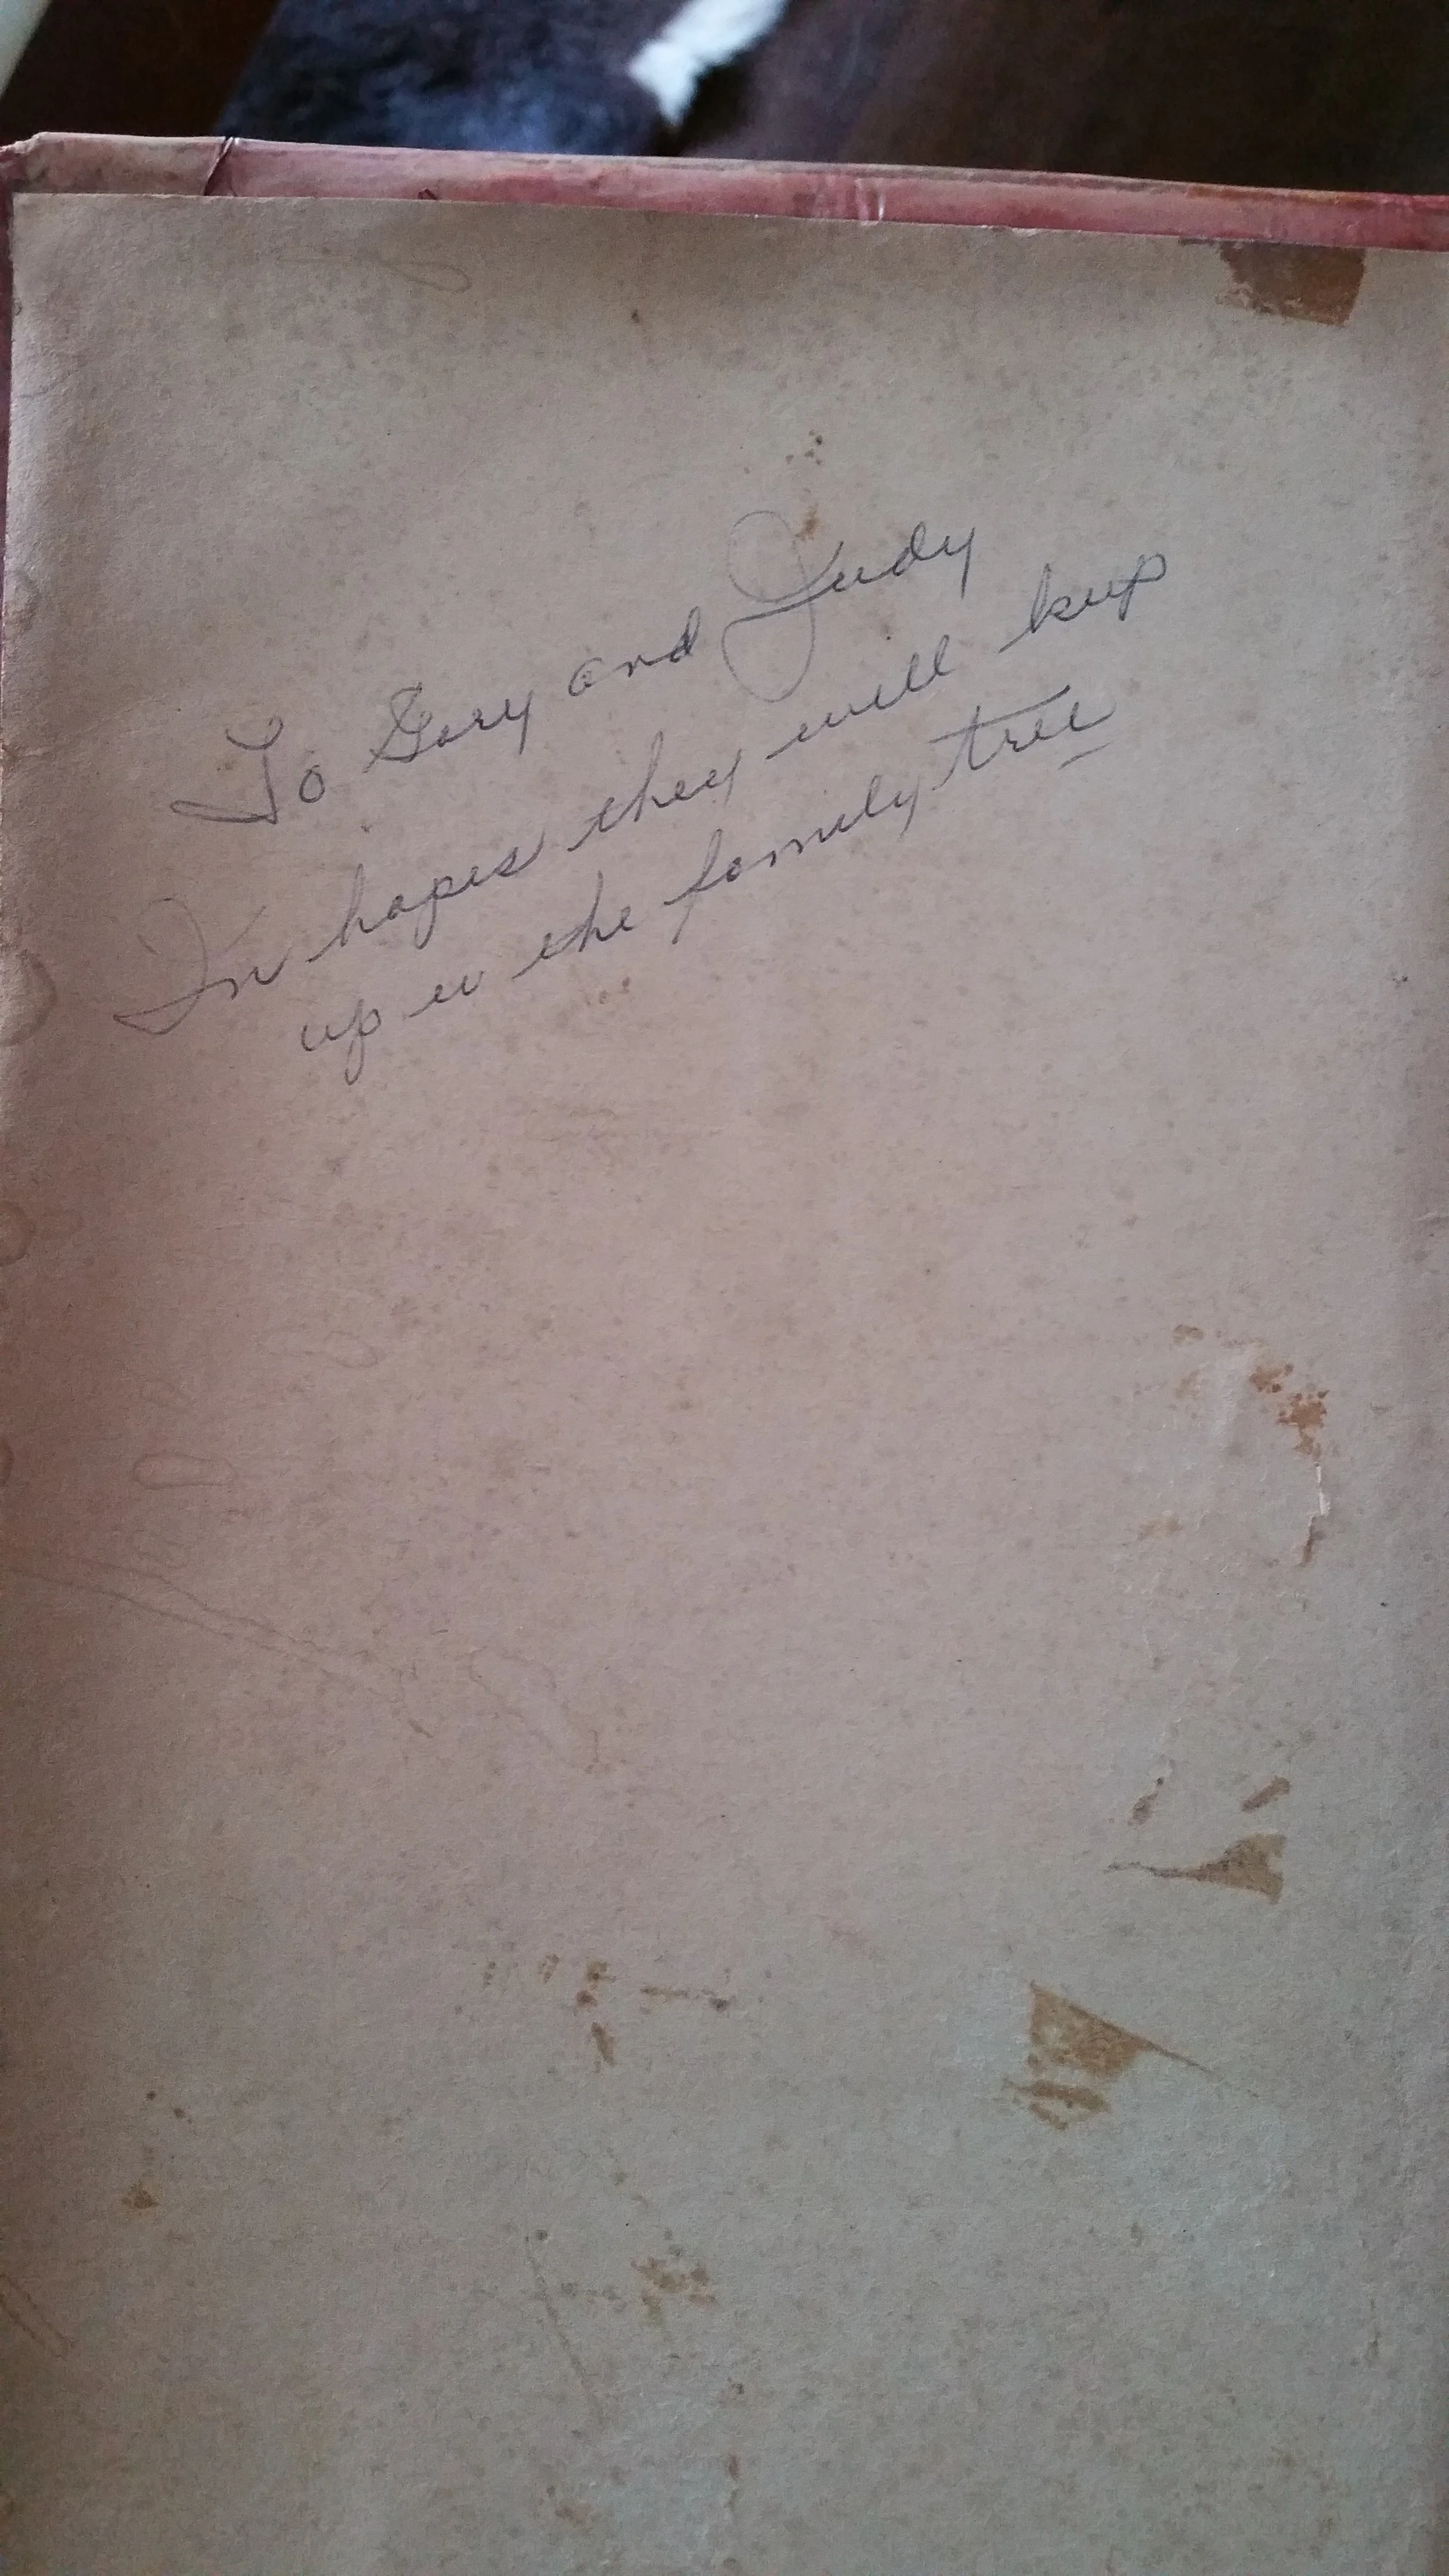 To Gary and Judy
In hopes they will keep
up w the family tree